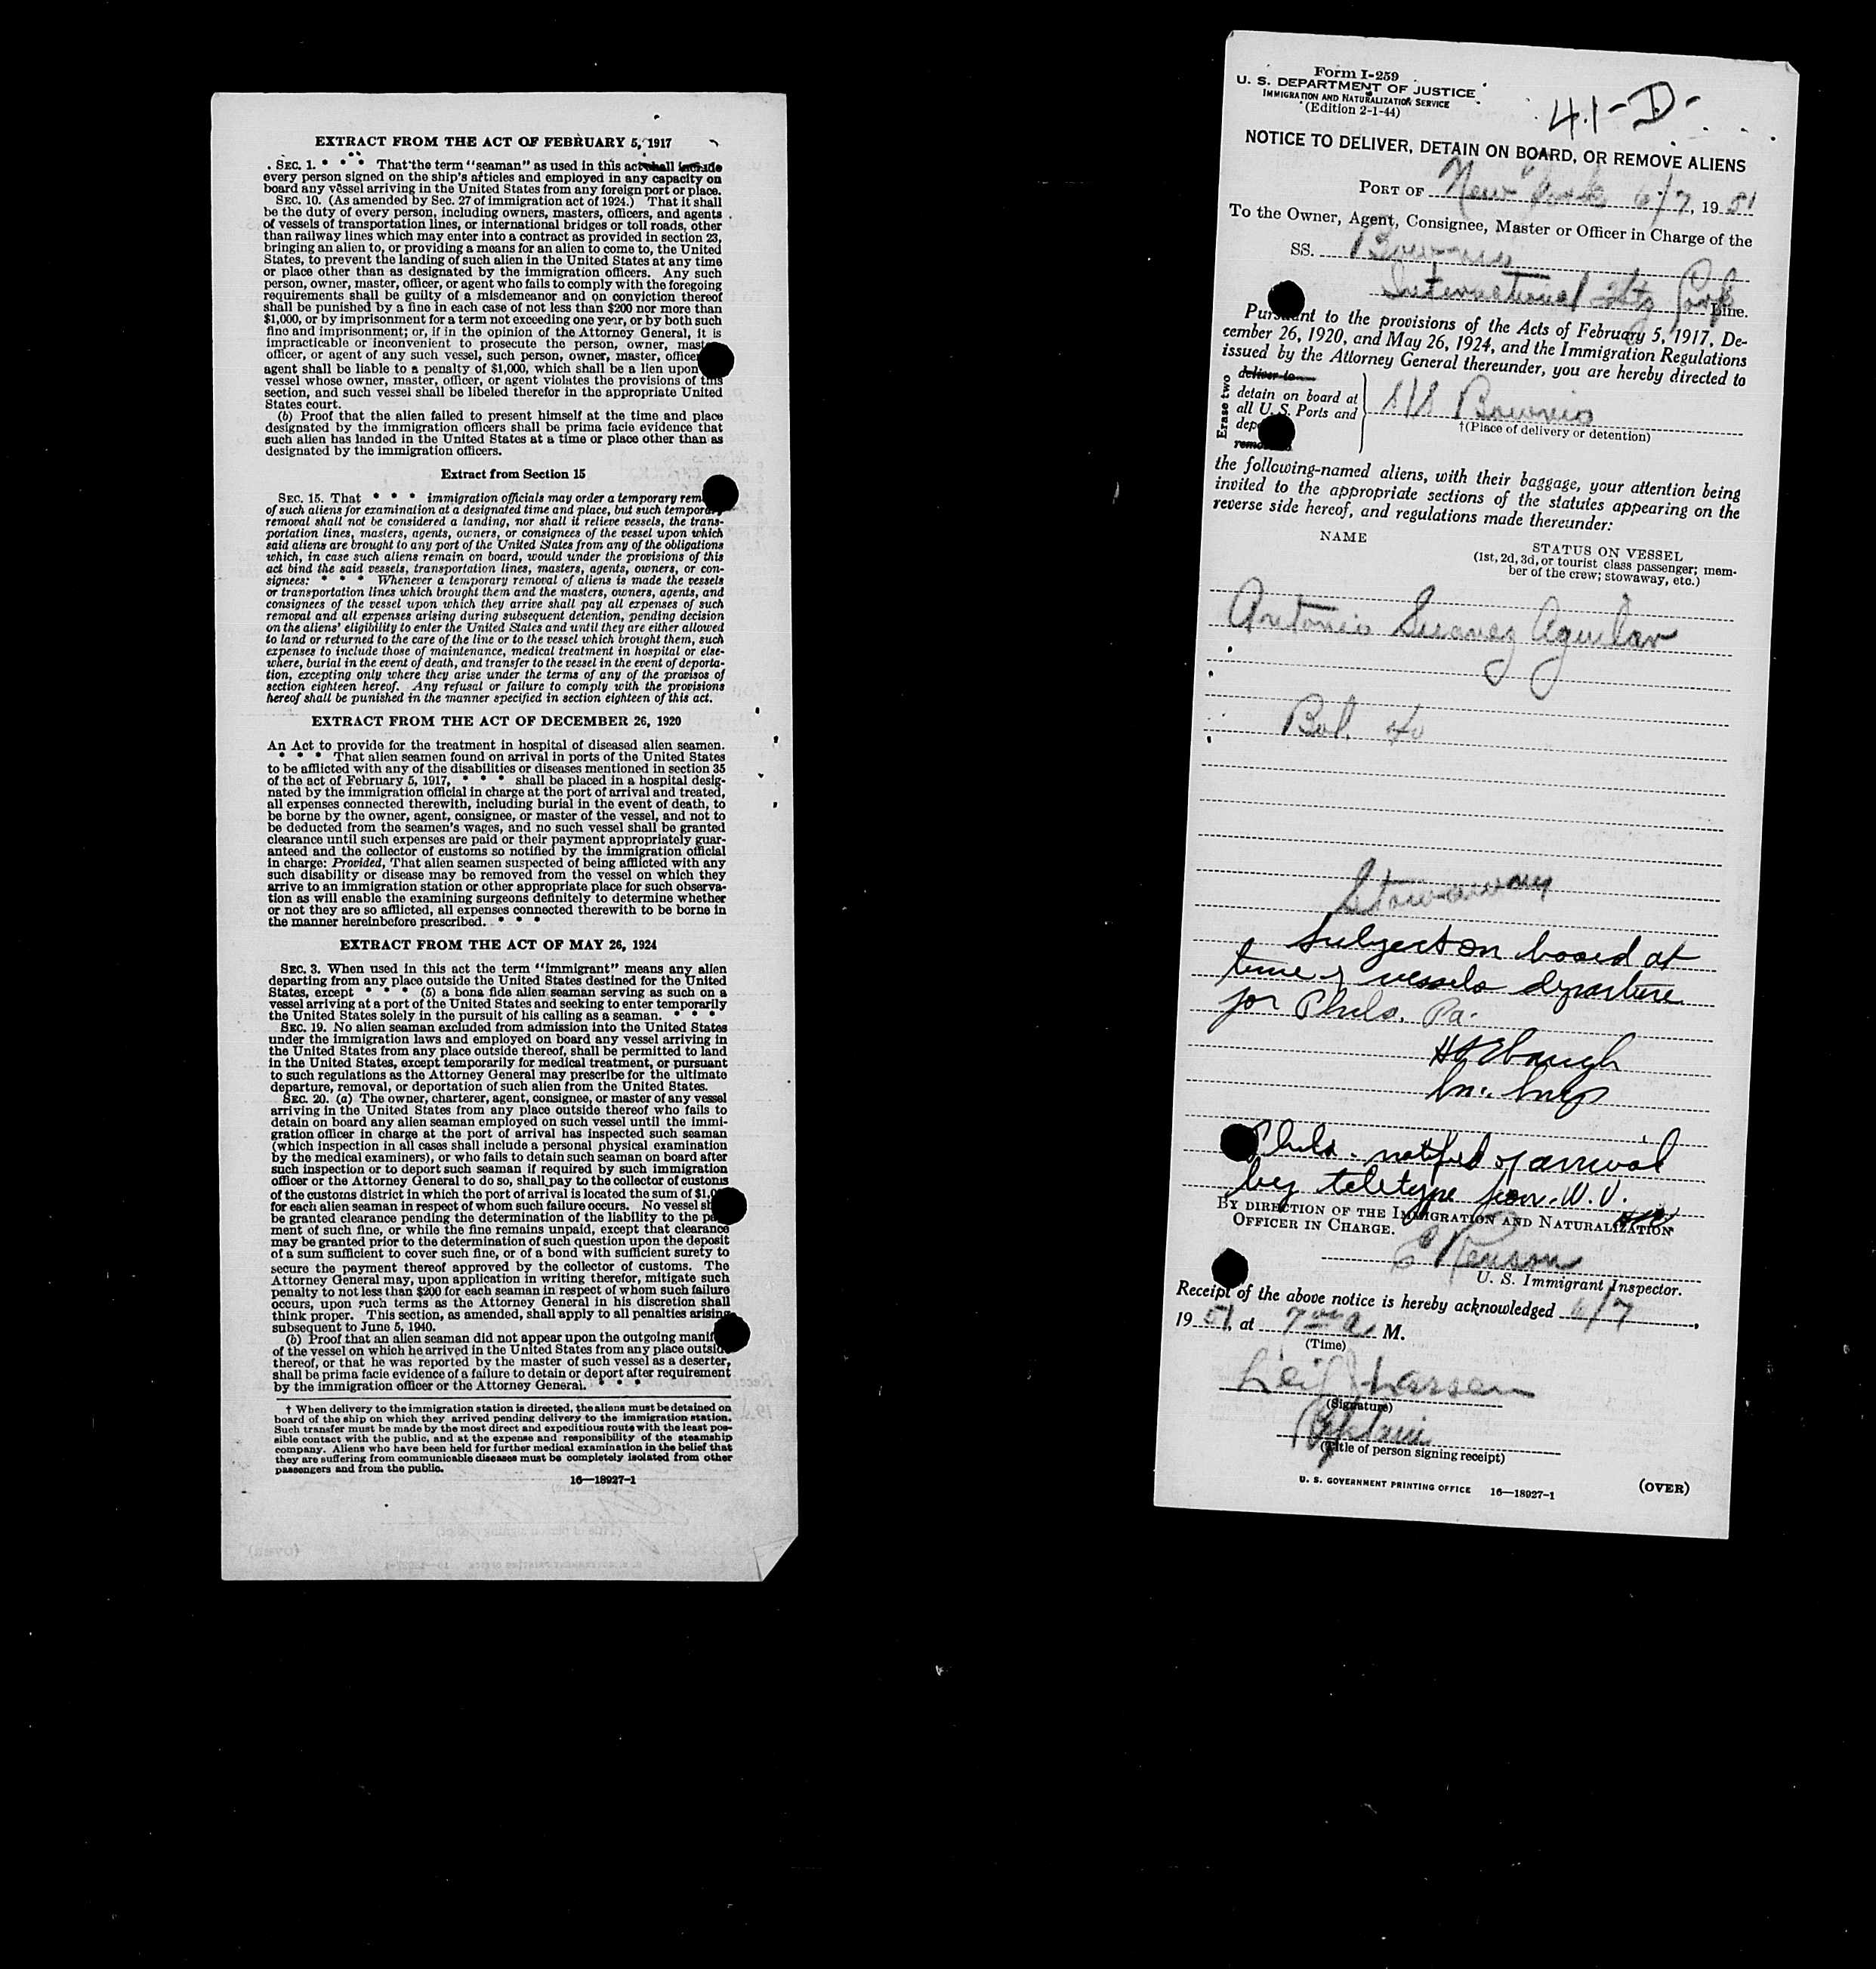 EXTRACT FROM THE ACT OF FEBRUARY 5, 1917
SEC. 1. * * * That the term "seaman" as used in this act shall include
every person signed on the ship's articles and employed in any capacity on
board any vessel arriving in the United States from any foreign port or place.
SEC. 10. (As amended by Sec. 27 of immigration act of 1924.) That it shall
be the duty of every person, including owners, masters, officers, and agents
of vessels of transportation lines, or international bridges or toll roads, other
than railway lines which may enter into a contract as provided in section 23,
bringing an alien to, or providing a means for an alien to come to, the United
States, to prevent the landing of such alien in the United States at any time
or place other than as designated by the immigration officers. Any such
person, owner, master, officer, or agent who fails to comply with the foregoing
requirements shall be guilty of a misdemeanor and on conviction thereof
shall be punished by a fine in each case of not less than $200 nor more than
$1,000, or by imprisonment for a term not exceeding one year, or by both such
fine and imprisonment; or, if in the opinion of the Attorney General, it is
impracticable or inconvenient to prosecute the person, owner, mast
officer, or agent of any such vessel, such person, owner, master, officer
agent shall be liable to a penalty of $1,000, which shall be a lien upon
vessel whose owner, master, officer, or agent violates the provisions of this
section, and such vessel shall be libeled therefor in the appropriate United
States court.
(b) Proof that the alien failed to present himself at the time and place
designated by the immigration officers shall be prima facie evidence that
such alien has landed in the United States at a time or place other than as
designated by the immigration officers.
Extract from Section 15
SEC. 15. That * * * immigration officials may order a temporary rem
of such aliens for examination at a designated time and place, but such temporary
removal shall not be considered a landing, nor shall it relieve vessels, the trans-
portation lines, masters, agents, owners, or consignees of the vessel upon which
said aliens are brought to any port of the United States from any of the obligations
which, in case such aliens remain on board, would under the provisions of this
act bind the said vessels, transportation lines, masters, agents, owners, or con-
signees: * * * Whenever a temporary removal of aliens is made the vessels
or transportation lines which brought them and the masters, owners, agents, and
consignees of the vessel upon which they arrive shall pay all expenses of such
removal and all expenses arising during subsequent detention, pending decision
on the aliens' eligibility to enter the United States and until they are either allowed
to land or returned to the care of the line or to the vessel which brought them, such
expenses to include those of maintenance, medical treatment in hospital or else-
where, burial in the event of death, and transfer to the vessel in the event of deporta-
tion, excepting only where they arise under the terms of any of the provisos of
section eighteen hereof. Any refusal or failure to comply with the provisions
hereof shall be punished in the manner specified in section eighteen of this act.
EXTRACT FROM THE ACT OF DECEMBER 26, 1920
An Act to provide for the treatment in hospital of diseased alien seamen.
* * * That alien seamen found on arrival in ports of the United States
to be afflicted with any of the disabilities or diseases mentioned in section 35
of the act of February 5, 1917, * * * shall be placed in a hospital desig-
nated by the immigration official in charge at the port of arrival and treated,
all expenses connected therewith, including burial in the event of death, to
be borne by the owner, agent, consignee, or master of the vessel, and not to
be deducted from the seamen's wages, and no such vessel shall be granted
clearance until such expenses are paid or their payment appropriately guar-
anteed and the collector of customs so notified by the immigration official
in charge: Provided, That alien seamen suspected of being afflicted with any
such disability or disease may be removed from the vessel on which they
arrive to an immigration station or other appropriate place for such observa-
tion as will enable the examining surgeons definitely to determine whether
or not they are so afflicted, all expenses connected therewith to be borne in
the manner hereinbefore prescribed. * * *
EXTRACT FROM THE ACT OF MAY 26, 1924
SEC. 3. When used in this act the term "immigrant" means any alien
departing from any place outside the United States destined for the United
States, except * * * (5) a bona fide alien seaman serving as such on a
vessel arriving at a port of the United States and seeking to enter temporarily
the United States solely in the pursuit of his calling as a seaman. * * *
SEC. 19. No alien seaman excluded from admission into the United States
under the immigration laws and employed on board any vessel arriving in
the United States from any place outside thereof, shall be permitted to land
in the United States, except temporarily for medical treatment, or pursuant
to such regulations as the Attorney General may prescribe for the ultimate
departure, removal, or deportation of such alien from the United States.
SEC. 20. (a) The owner, charterer, agent, consignee, or master of any vessel
arriving in the United States from any place outside thereof who fails to
detain on board any alien seaman employed on such vessel until the immi-
gration officer in charge at the port of arrival has inspected such seaman
(which inspection in all cases shall include a personal physical examination
by the medical examiners), or who fails to detain such seaman on board after
such inspection or to deport such seaman if required by such immigration
officer or the Attorney General to do so, shall pay to the collector of customs
of the customs district in which the port of arrival is located the sum of $1,0
for each alien seaman in respect of whom such failure occurs. No vessel sh
be granted clearance pending the determination of the liability to the pa
ment of such fine, or while the fine remains unpaid, except that clearance
may be granted prior to the determination of such question upon the deposit
of a sum sufficient to cover such fine, or of a bond with sufficient surety to
secure the payment thereof approved by the collector of customs. The
Attorney General may, upon application in writing therefor, mitigate such
penalty to not less than $200 for each seaman in respect of whom such failure
occurs, upon such terms as the Attorney General in his discretion shall
think proper. This section, as amended, shall apply to all penalties arising
subsequent to June 5, 1940.
(b) Proof that an alien seaman did not appear upon the outgoing manif
of the vessel on which he arrived in the United States from any place outside
thereof, or that he was reported by the master of such vessel as a deserter,
shall be prima facie evidence of a failure to detain or deport after requirement
by the immigration officer or the Attorney General. * * *
† When delivery to the immigration station is directed, the aliens must be detained on
board of the ship on which they arrived pending delivery to the immigration station.
Such transfer must be made by the most direct and expeditious route with the least pos-
sible contact with the public, and at the expense and responsibility of the steamship
company. Aliens who have been held for further medical examination in the belief that
they are suffering from communicable diseases must be completely isolated from other
passengers and from the public.
16—18927-1
Form I-259
U. S. DEPARTMENT OF JUSTICE
IMMIGRATION AND NATURALIZATION SERVICE
(Edition 2-1-44)
41-D-
NOTICE TO DELIVER, DETAIN ON BOARD, OR REMOVE ALIENS
PORT OF New York 6/7, 19 51
To the Owner, Agent, Consignee, Master or Officer in Charge of the
SS.
International Line.
Pursuant to the provisions of the Acts of February 5, 1917, De-
cember 26, 1920, and May 26, 1924, and the Immigration Regulations
issued by the Attorney General thereunder, you are hereby directed to
Erase two
deliver to
detain on board at
all U. S. Ports and
dep
remo
S/S
†(Place of delivery or detention)
the following-named aliens, with their baggage, your attention being
invited to the appropriate sections of the statutes appearing on the
reverse side hereof, and regulations made thereunder:
NAME
STATUS ON VESSEL
(1st, 2d, 3d, or tourist class passenger; mem-
ber of the crew; stowaway, etc.)
Antonio Suarez Aguilar
Stowaway
Subject on board at
time of vessels departure
for Phila. Pa.
Phila. notified of arrival
by teletype from
BY DIRECTION OF THE IMMIGRATION AND NATURALIZATION
OFFICER IN CHARGE.
U. S. Immigrant Inspector.
Receipt of the above notice is hereby acknowledged 6/7,
19 51, at 7 00 a. M.
(Time)
Leif Larsen
(Signature)
Captain
(Title of person signing receipt)
U. S. GOVERNMENT PRINTING OFFICE 16—18927-1
(OVER)